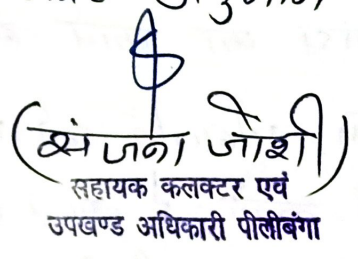 (संजना जोशी)
सहायक कलक्टर एवं
उपखण्ड अधिकारी पीलीबंगा